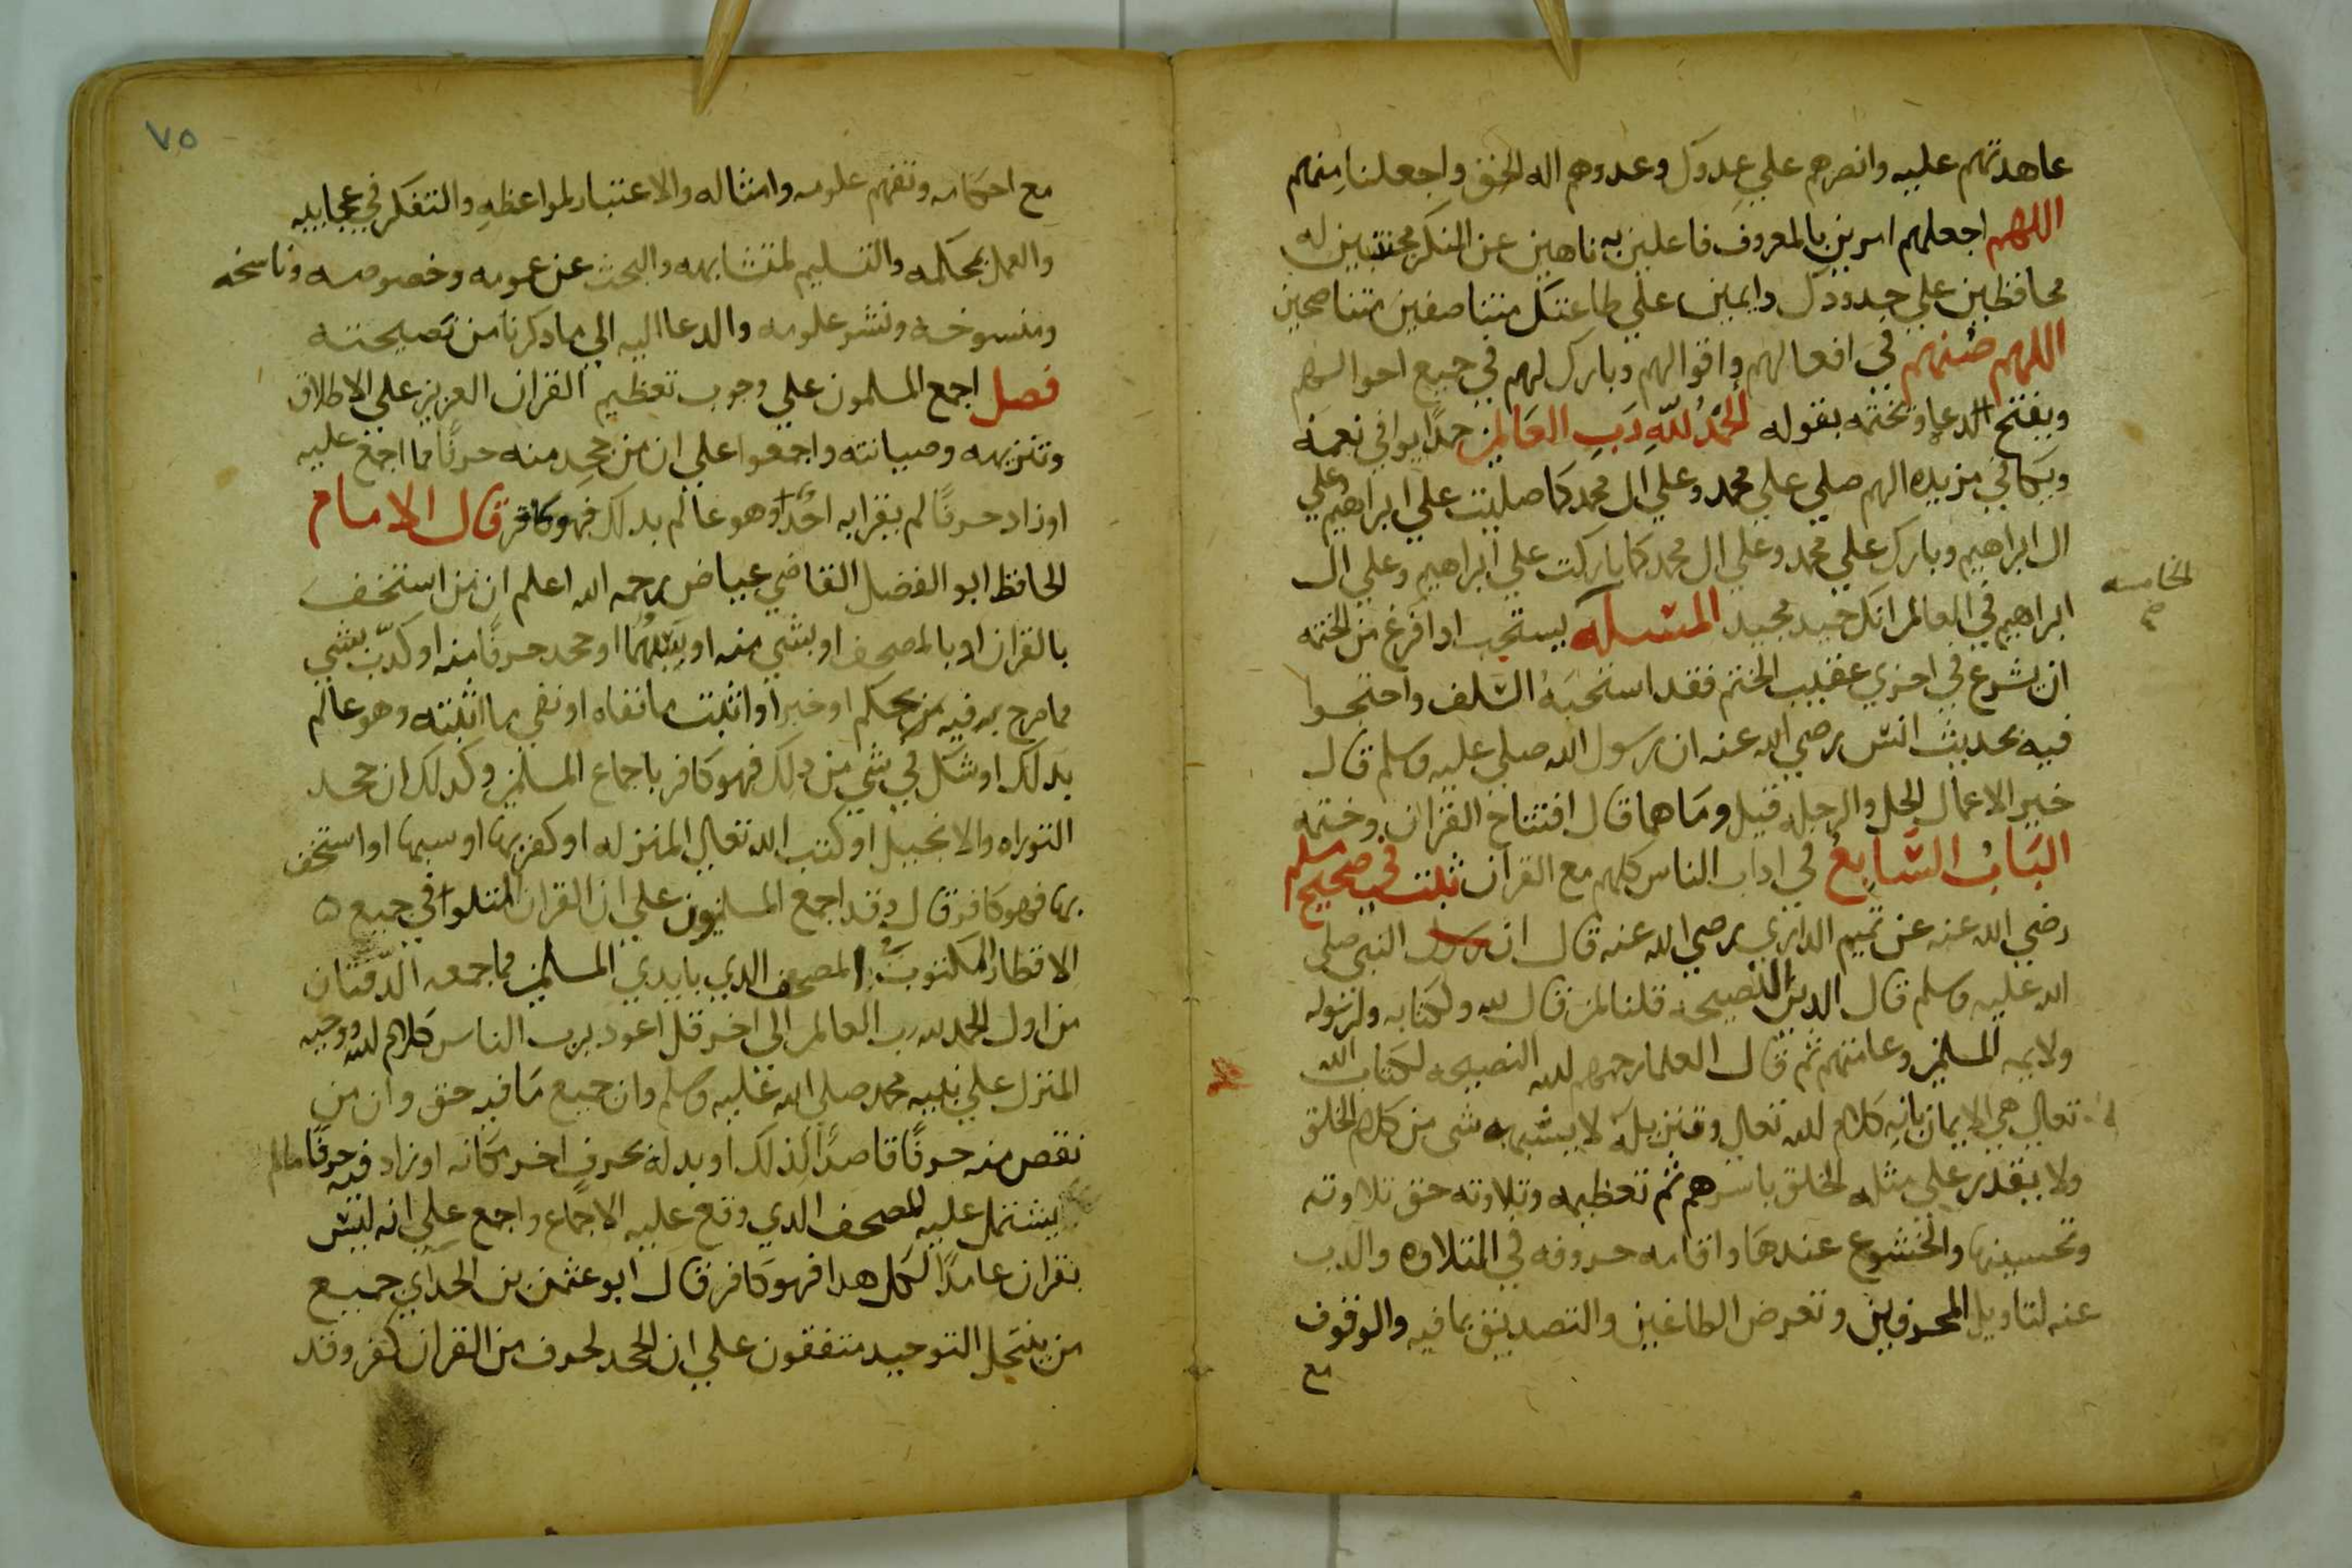 عاهدتهم عليه وانصرهم علي عدوك وعدوهم اله الحق واجعلنا منهم
اللهم اجعلهم امرين بالمعروف فاعلين به ناهين عن المنكر مجتنبين له
محافظين علي حدودك دايمين علي طاعتك متناصفين متناصحين
اللهم صنهم في افعالهم واقوالهم وبارك لهم في جميع احوالهم
ويفتتح الدعا ويختمه بقوله الحمد لله رب العالمين حمدا يوافي نعمه
ويكافي مزيده الهم صلي علي محمد وعلي ال محمد كما صليت علي ابراهيم وعلي
ال ابراهيم وبارك علي محمد وعلي ال محمد كما باركت علي ابراهيم وعلي ال
ابراهيم في العالمين انك حميد مجيد المسله يستحب ادا فرغ من الختمه
الخامسه
صح
ان يشرع في اخري عقيب الختم فقد استحبه السلف واحتجوا
فيه بحديث انس رضي الله عنه ان رسول الله صلي عليه وسلم قال
خير الاعمال الحل والرحله قيل وما هما قال افتتاح القران وختمه
الباب السابع في اداب الناس كلهم مع القران ثبت في صحيح مسلم
رضي الله عنه عن تميم الداري رضي الله عنه قال ان رسول النبي صلي
الله عليه وسلم قال الدين النصيحه قلنا لمن قال لله ولكتابه ولرسوله
ولايمه المسلمين وعامتهم ثم قال العلما رحمهم لله النصيحه لكتاب الله
تعالي هي الايمان بانه كلام لله تعالي وتنزيله لا يشبهه شي من كلام الخلق
ولا يقدر علي مثله الخلق باسرهم ثم تعظيمه وتلاوته حق تلاوته
وتحسينها والخشوع عندها واقامه حروفه في التلاوه والدب
عنه لتاويل المحرفين وتعرض الطاغين والتصديق بما فيه والوقوف
مع
٧٥
مع احكامه وتفهم علومه وامثاله والاعتبار لمواعظه والتفكر في عجايبه
والعمل بمحكمه والتسليم لمتشابهه والبحث عن عمومه وخصوصه وناسخه
ومنسوخه ونشر علومه والدعا اليه الي ما دكرنا من نصيحته
فصل اجمع المسلمون علي وجوب تعظيم القران العزيز علي الاطلاق
وتنزيهه وصيانته واجمعوا علي ان من جحد منه حرفا مما اجمع عليه
او زاد حرفا لم يقرا به احد وهو عالم بدلك فهو كافر قال الامام
الحافظ ابو الفضل القاضي عياض رحمه الله اعلم ان من استخف
بالقران او بالمصحف او بشي منه او سبهما او جحد حرفا منه او كدب بشي
مما صرح به فيه من حكم او خبر او اثبت ما نفاه او نفي ما اثبته وهو عالم
بدلك او شك في شي من دلك فهو كافر باجماع المسلمين وكدلك ان جحد
التوراه والانجيل او كتب الله تعالي المنزله او كفر بها او سبها او استخف
بها فهو كافر قال وقد اجمع المسلمون علي ان القران المتلوا في جميع ه
الاقطار المكتوب المصحف الدي بايدي المسلمين مما جمعه الدفتان
من اول الحمد لله رب العالمين الي اخر قل اعود برب الناس كلام لله ووحيه
المنزل علي نبيه محمد صلي الله عليه وسلم وان جميع ما فيه حق وان من
نقص منه حرفا قاصدا لذلك او بدله بحرف اخر مكانه او زاد فيه حرفا مالم
يشتمل عليه المصحف الدي وقع عليه الاجماع واجمع علي انه ليس
بقران عامدا لكل هدا فهو كافر قال ابو عثمن بن الحداي جميع
من ينتحل التوحيد متفقون علي ان الجحد لحرف من القران كفر وقد